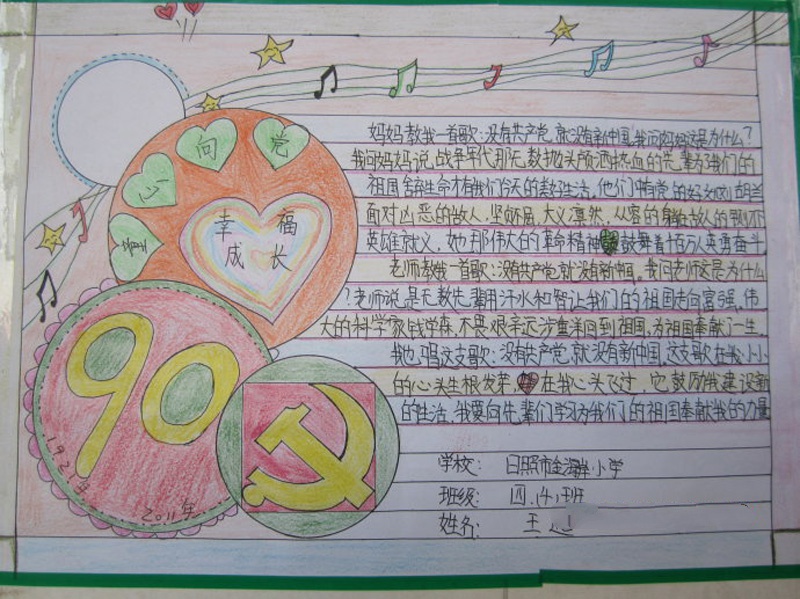 童心向党
幸福
成长
90
1921年
2011年
妈妈教我一首歌:没有共产党,就没有新中国,我问妈妈这是为什么?
我问妈妈说,战争年代那无数抛头颅洒热血的先辈为了我们的
祖国牺牲生命才有我们今天的 生活,他们中有党的好女刘胡兰
面对凶恶的敌人,坚 不屈,大义凛然,从容的 敌人的
英雄就义,她那伟大的革命精神鼓舞着千百万人英勇奋斗
老师教我一首歌:没有共产党就没有新中国,我问老师这是为什么
?老师说是无数先辈用汗水和智 让我们的祖国走向富强,伟
大的科学家钱学森,不畏艰辛远涉重洋回到祖国,为祖国奉献了一生
我也唱这支歌:没有共产党,就没有新中国,这支歌在我小小
的心头生根发芽,在我心头飞过,它鼓历我建设新
的生活,我要向先辈们学习为我们的祖国奉献我的力量
学校:日照市金海岸小学
班级:四.14.班
姓名:王